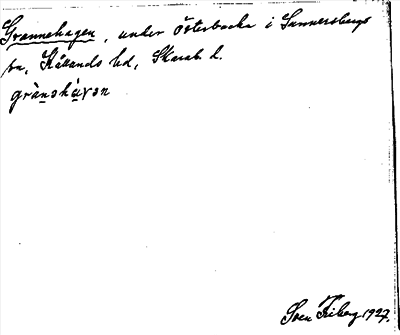 Grannehagen, under Österbacka i Sunnersbergs
sn, Kållands hd, Skarab. l.
grànəhà̱vən
Sven Friberg 1927.